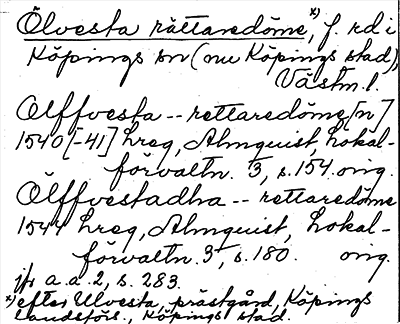 Ölvesta rättaredöme, x) f. rd i
Köpings sn (nu Köpings stad),
Västm. l.
Olffvesta -- rettaredöme[n]
1540[-41] hreg, Almquist, Lokal-
förvaltn. 3, s. 154. orig.
Ölffvestadha -- rettaredöme
1544 hreg, Almquist, Lokal-
förvaltn. 3, s. 180. orig.
jfr a.a. 2, s. 283.
x) efter Ulvesta, prästgård, Köpings
landsförs., Köpings stad.